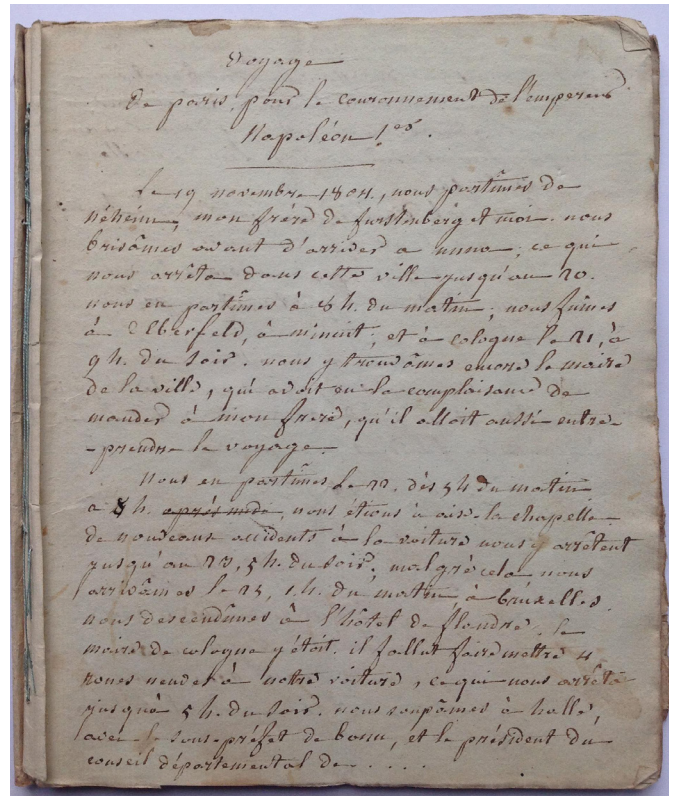 Voyage
De paris, pour le couronnement de l'empereur
Napoléon 1.er.
Le 19 novembre 1804, nous partîmes de
néheim, mon frere de furstenberg et moi. nous
brisâmes avant d'arriver a unna; ce qui
nous arrêta dans cette ville jusqu'au 20.
nous en partîmes à 8 h. du matin; nous fûmes
à Elberfeld, à minuit, et à cologne le 21, à
9 h. du soir. nous y trouvâmes encore le maire
de la ville, qui avoit eu la complaisance de
mander à mon frere, qu'il alloit aussi entre-
-prendre le voyage.
Nous en partîmes le 22. dès 5 h du matin
a 8 h. après midi, nous étions à aix-la chapelle.
de nouveaux accidents à la voiture nous y arrêtent
jusqu'au 23, 5 h. du soir; malgré cela nous
arrivâmes le 25, 1 h. du matin, a bruxelles.
nous descendîmes à l'hôtel de flandre. le
maire de cologne y étoit. il fallut faire mettre 4
roues neuves à nottre voiture, ce qui nous arrêta
jusqu'à 5 h. du soir. nous soupâmes à halle,
avec le sous-préfet de bonn, et le président du
conseil départemental de . . . .